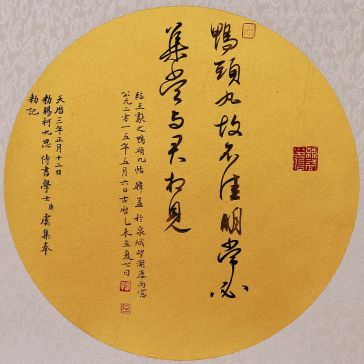 鴨頭丸故不佳明當必
集當与君相見
臨王獻之鴨頭丸帖 於泉城望湖居雨窗
公元二零一五年五月六日古曆乙未立夏之日
天曆三年正月十二日
勅賜柯九思 侍書學士臣虞集奉
勅記